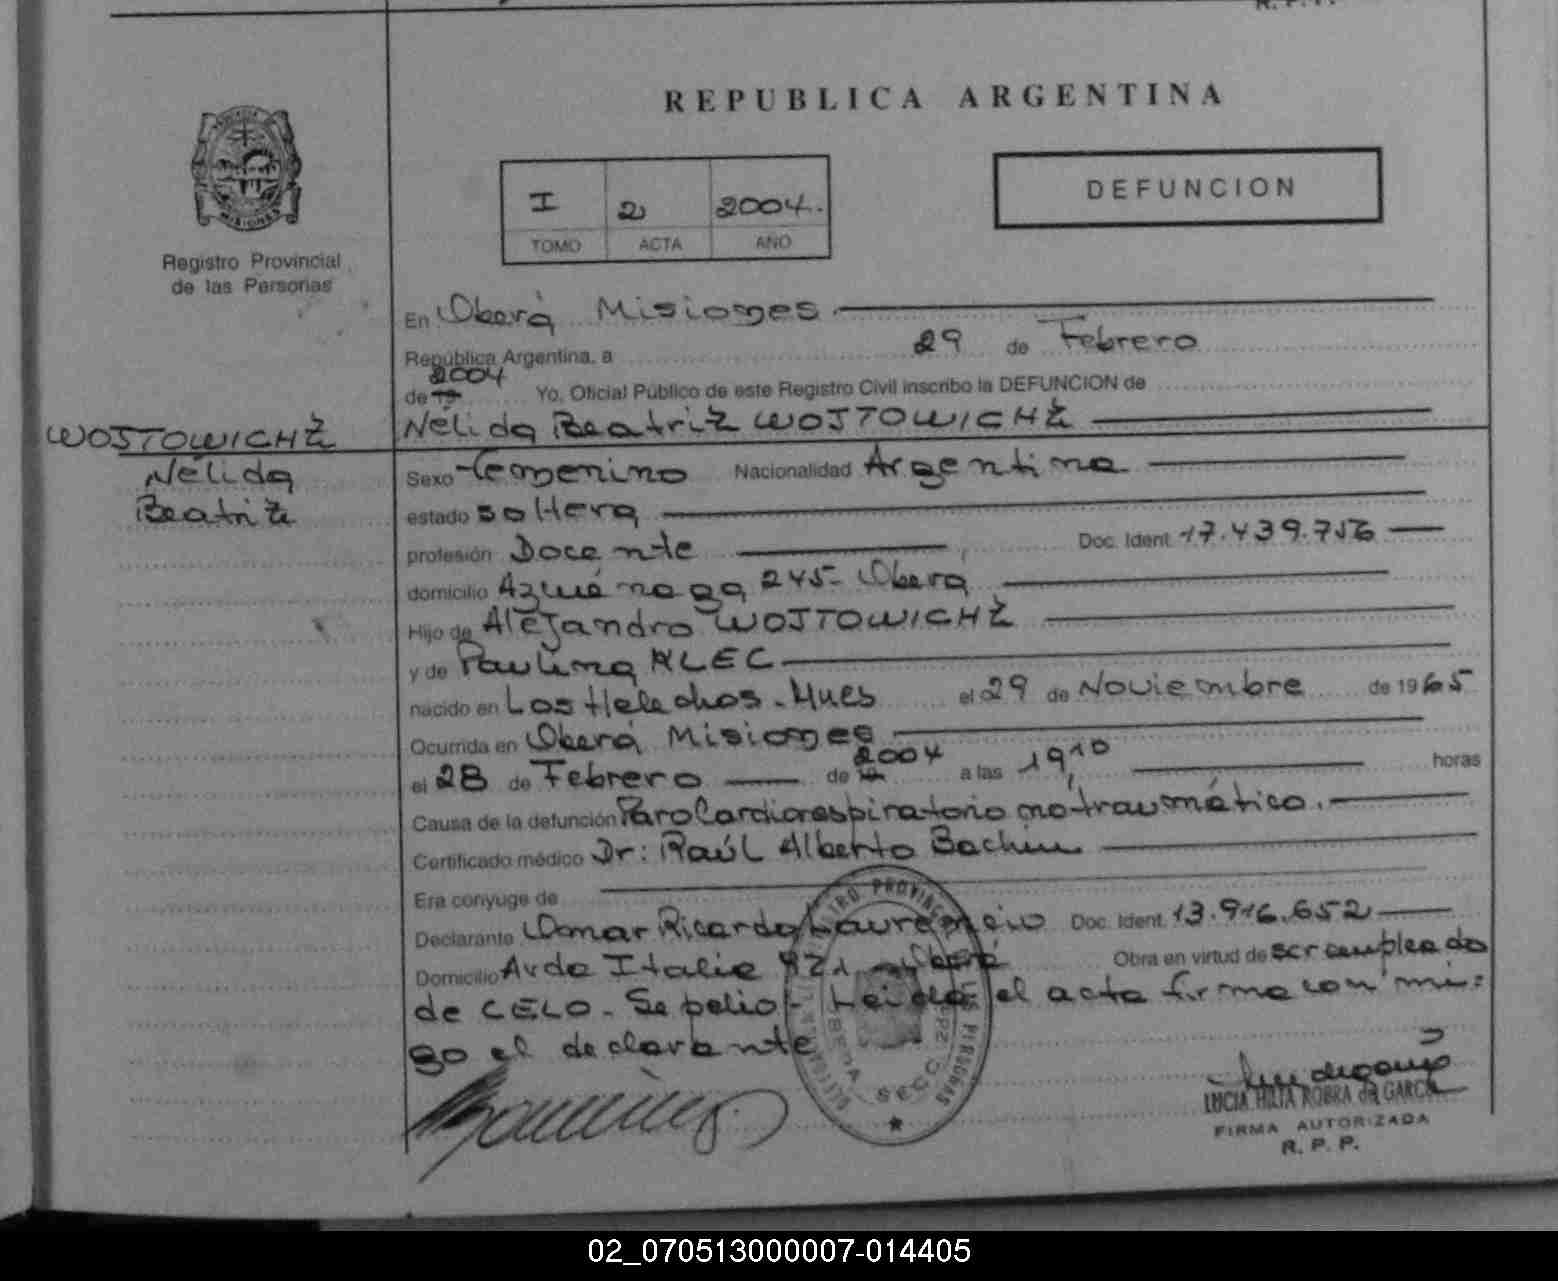 R. P. P.
REPUBLICA ARGENTINA
I 2 2004.
TOMO ACTA AÑO
DEFUNCION
MISIONES
Registro Provincial
de las Personas
En Oberá Misiones
República Argentina, a 29 de Febrero
2004
de 19 Yo, Oficial Público de este Registro Civil inscribo la DEFUNCION de
Nélida Beatriz WOJTOWICHZ
WOJTOWICHZ
Nélida
Beatriz
Sexo femenino Nacionalidad Argentina
estado soltera
profesión Docente Doc. Ident. 17.439.756
domicilio Azcuénaga 245- Oberá
Hijo de Alejandro WOJTOWICHZ
y de Paulina ALEC
nacido en Los Helechos - Mnes el 29 de Noviembre de 1965
Ocurrida en Oberá Misiones
el 28 de Febrero de 2004 a las 19,10 horas
Causa de la defunción Paro Cardiorespiratorio no traumático.
Certificado médico Dr: Raúl Alberto
Era conyuge de
Declarante Omar Ricardo Doc. Ident. 13.916.652
Domicilio Avda Italia 921 - Oberá Obra en virtud de ser empleado
de CELO - Se pelio - Leída el acta firma con mi:
go el declarante
SECC.
LUCIA HILIA ROBRA de GARCIA
FIRMA AUTORIZADA
R. P. P.
02_070513000007-014405